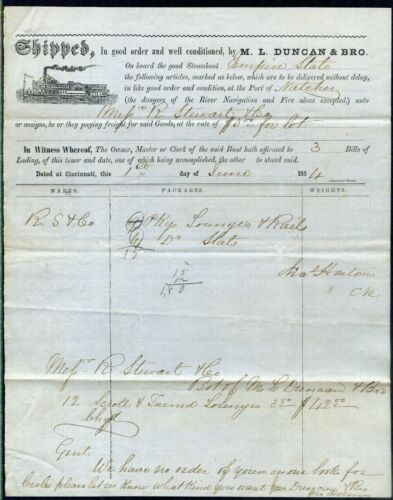 Shipped, In good order and well conditioned, by M. L. DUNCAN & BRO.
On board the good Steamboat Empire State
the following articles, marked as below, which are to be delivered without delay,
in like good order and condition, at the Port of Natchez
(the dangers of the River Navigation and Fire alone excepted,) unto
Messrs R Stewart & Co
or assigns, he or they paying freight for said Goods, at the rate of for lot
In Witness Whereof, The Owner, Master or Clerk of the said Boat hath affirmed to 3 Bills of
Lading, of this tenor and date, one of which being accomplished, the other to stand void.
Dated at Cincinnati, this 1st day of June 1854
MARKS. PACKAGES. WEIGHTS.
R S & Co Pkgs Lounges & Rails
6 Do Slats
15
15
12
180
Horton
Ck
Messrs R Stewart & Co
Bot of M L Duncan & Bro
12 Scroll & Turned Lounges 3.50 $42.00
Gent.
We have no order of yours on our books for
please let us know what kind you want Duncan & Bro